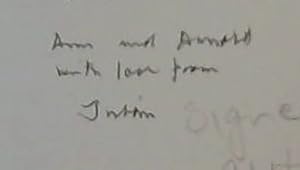 Ann and Arnold
with love from
Justin
signe